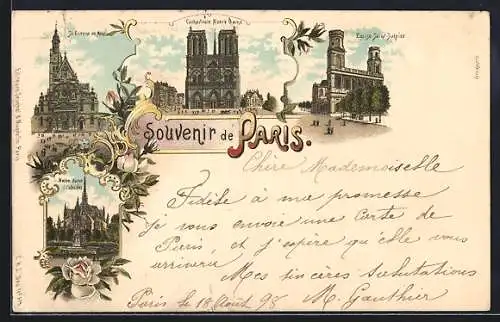 St Etienne du Mont
Cathédrale Notre Dame
Eglise Saint Sulpice
Souvenir de PARIS.
Notre Dame
Chère Mademoiselle
Fidèle à ma promesse
je vous envoie une Carte de
Paris, et j'espère qu'elle vous
arrivera
Mes sincères salutations
Paris le 18 Août 98 M. Gauthier